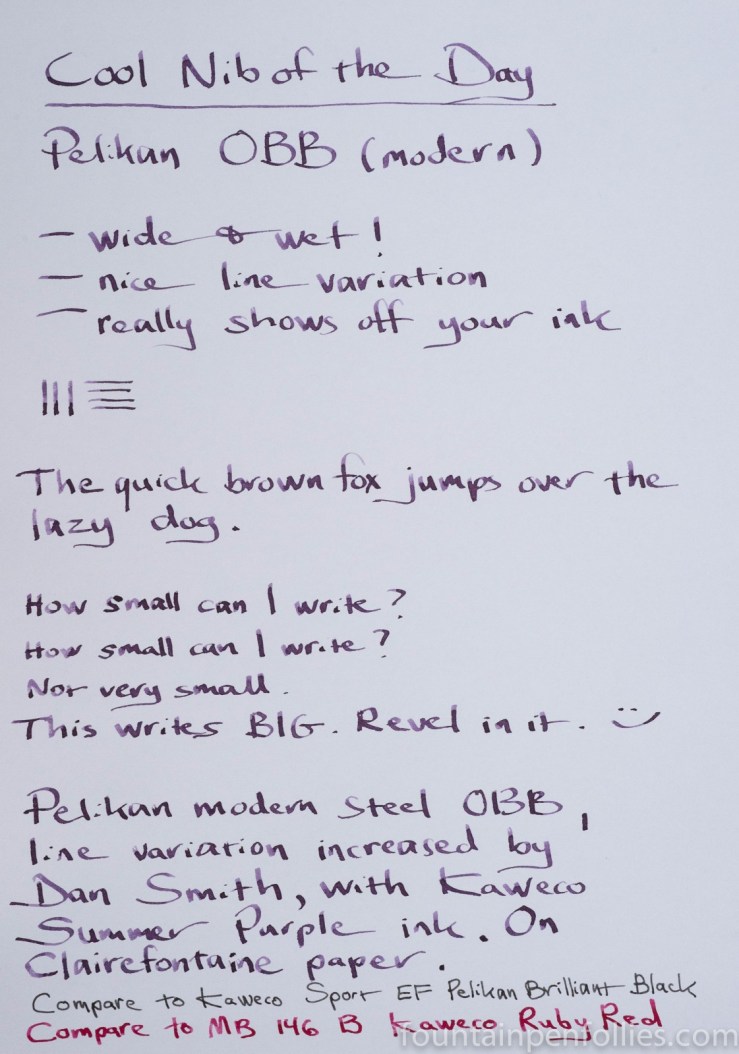 Cool Nib of the Day
Pelikan OBB (modern)
– wide & wet!
– nice line variation
– really shows off your ink
The quick brown fox jumps over the
lazy dog.
How small can I write?
How small can I write?
Not very small.
This writes BIG. Revel in it. :)
Pelikan modern steel OBB,
line variation increased by
Dan Smith, with Kaweco
Summer Purple ink. On
Clairefontaine paper.
Compare to Kaweco Sport EF Pelikan Brilliant Black
Compare to MB 146 B Kaweco Ruby Red
fountainpenfollies.com